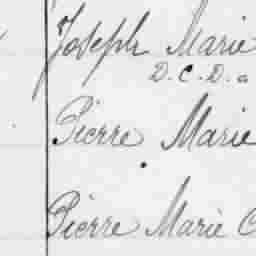 Joseph Marie
D.C.D. a
Pierre Marie
Pierre Marie C